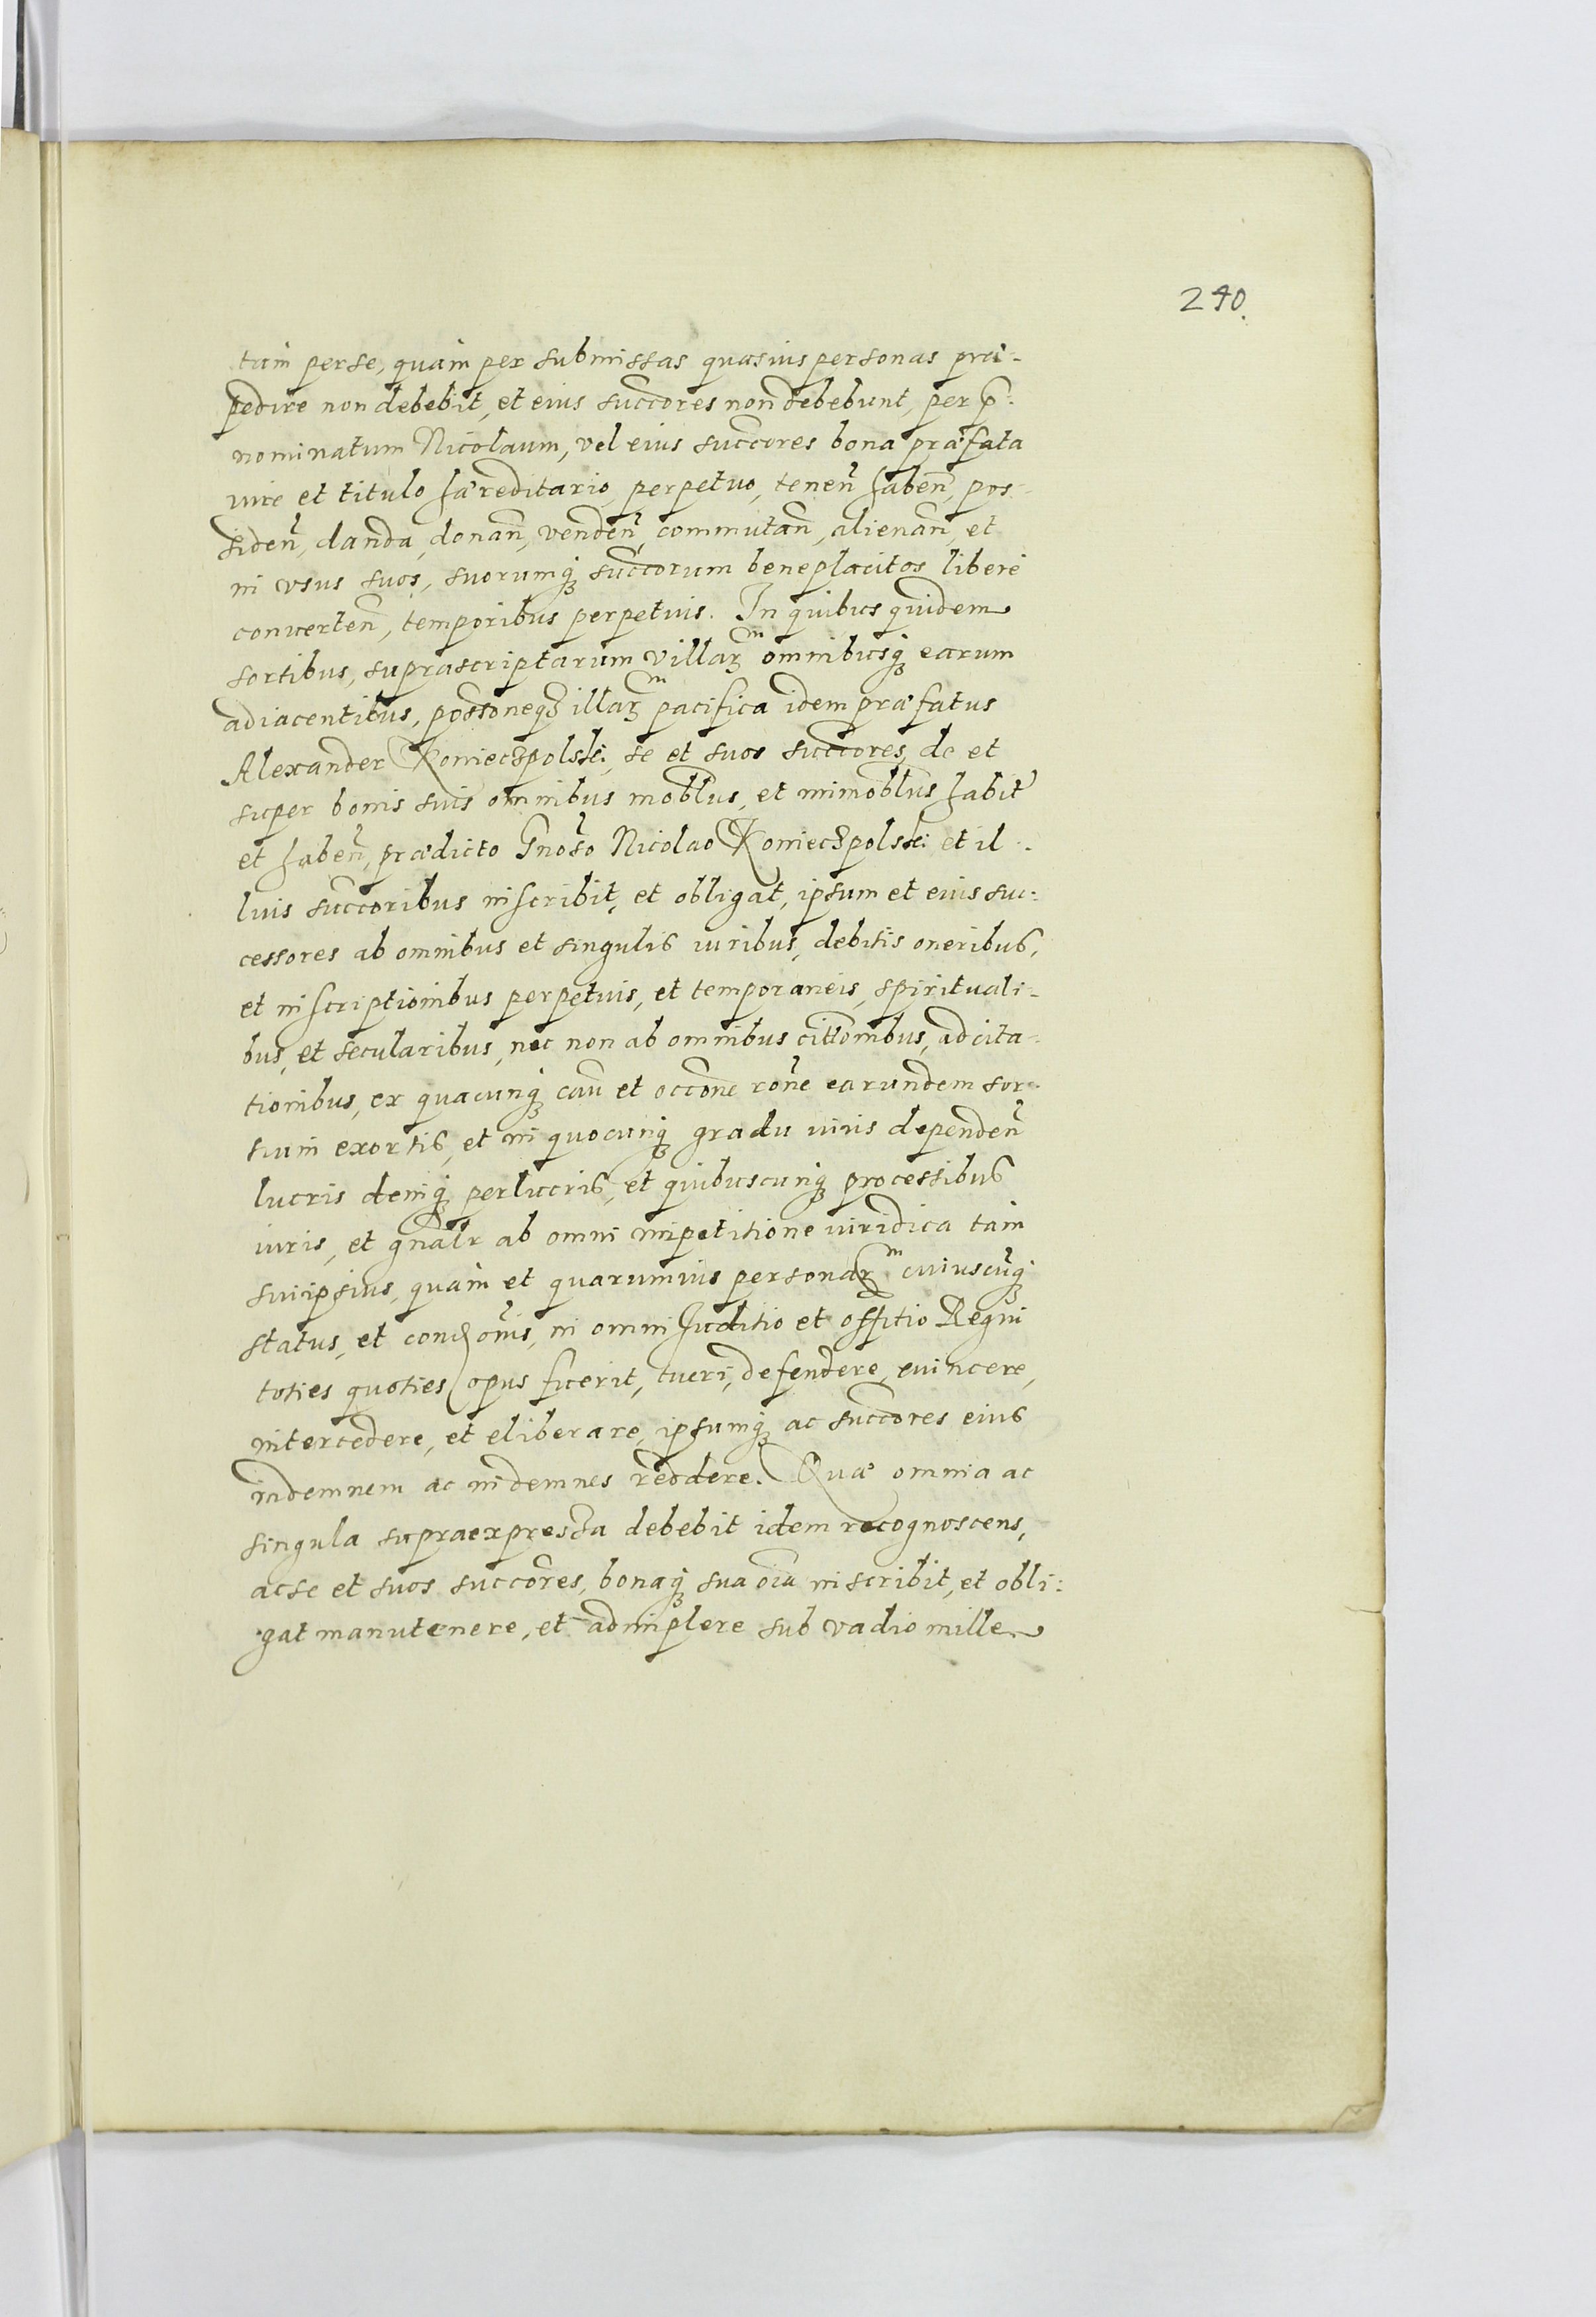 240.
tam per se, quam per submissas quasuis personas præ-
pedire non debebit, et eius succores non debebunt, per p:
nominatum Nicolaum, vel eius succores bona præfata
iure et titulo hæreditario perpetuo, tenen haben, pos-
siden, danda, donan, venden, commutan, alienan, et
in vsus suos, suorumq succorum beneplacitos liberè
conuerten, temporibus perpetuis. In quibus quidem
sortibus, suprascriptarum villarum omnibusq earum
adiacentibus, possoneq illarum pacifica idem præfatus
Alexander Konieczpolski, se et suos succores, de et
super bonis suis omnibus moblbus, et immoblbus habit
et haben, prædicto Gnoso Nicolao Konieczpolski et il-
lius succoribus inscribit, et obligat, ipsum et eius suc:
cessores ab omnibus et singulis iuribus, debitis oneribus,
et inscriptionibus perpetuis, et temporaneis, spirituali-
bus, et secularibus, nec non ab omnibus cittonibus, adcita-
tionibus, ex quacunq cau et occone rone earundem sor-
tium exortis, et in quocunq gradu iuris dependen
lucris deniq perlucris, et quibuscunq processibus
iuris, et gnalr ab omni impetitione iuridica tam
suiipsius, quam et quarumuis personarum cuiuscunq
status, et condonis, in omni Juditio et offitio Regni
toties quoties opus fuerit, tueri, defendere, euincere,
intercedere, et eliberare, ipsumq ac succores eius
indemnem ac indemnes reddere. Quæ omnia ac
singula supraexpressa debebit idem recognoscens,
ac se et suos succores, bonaq sua oia inscribit, et obli:
gat manutenere, et adimplere sub vadio mille